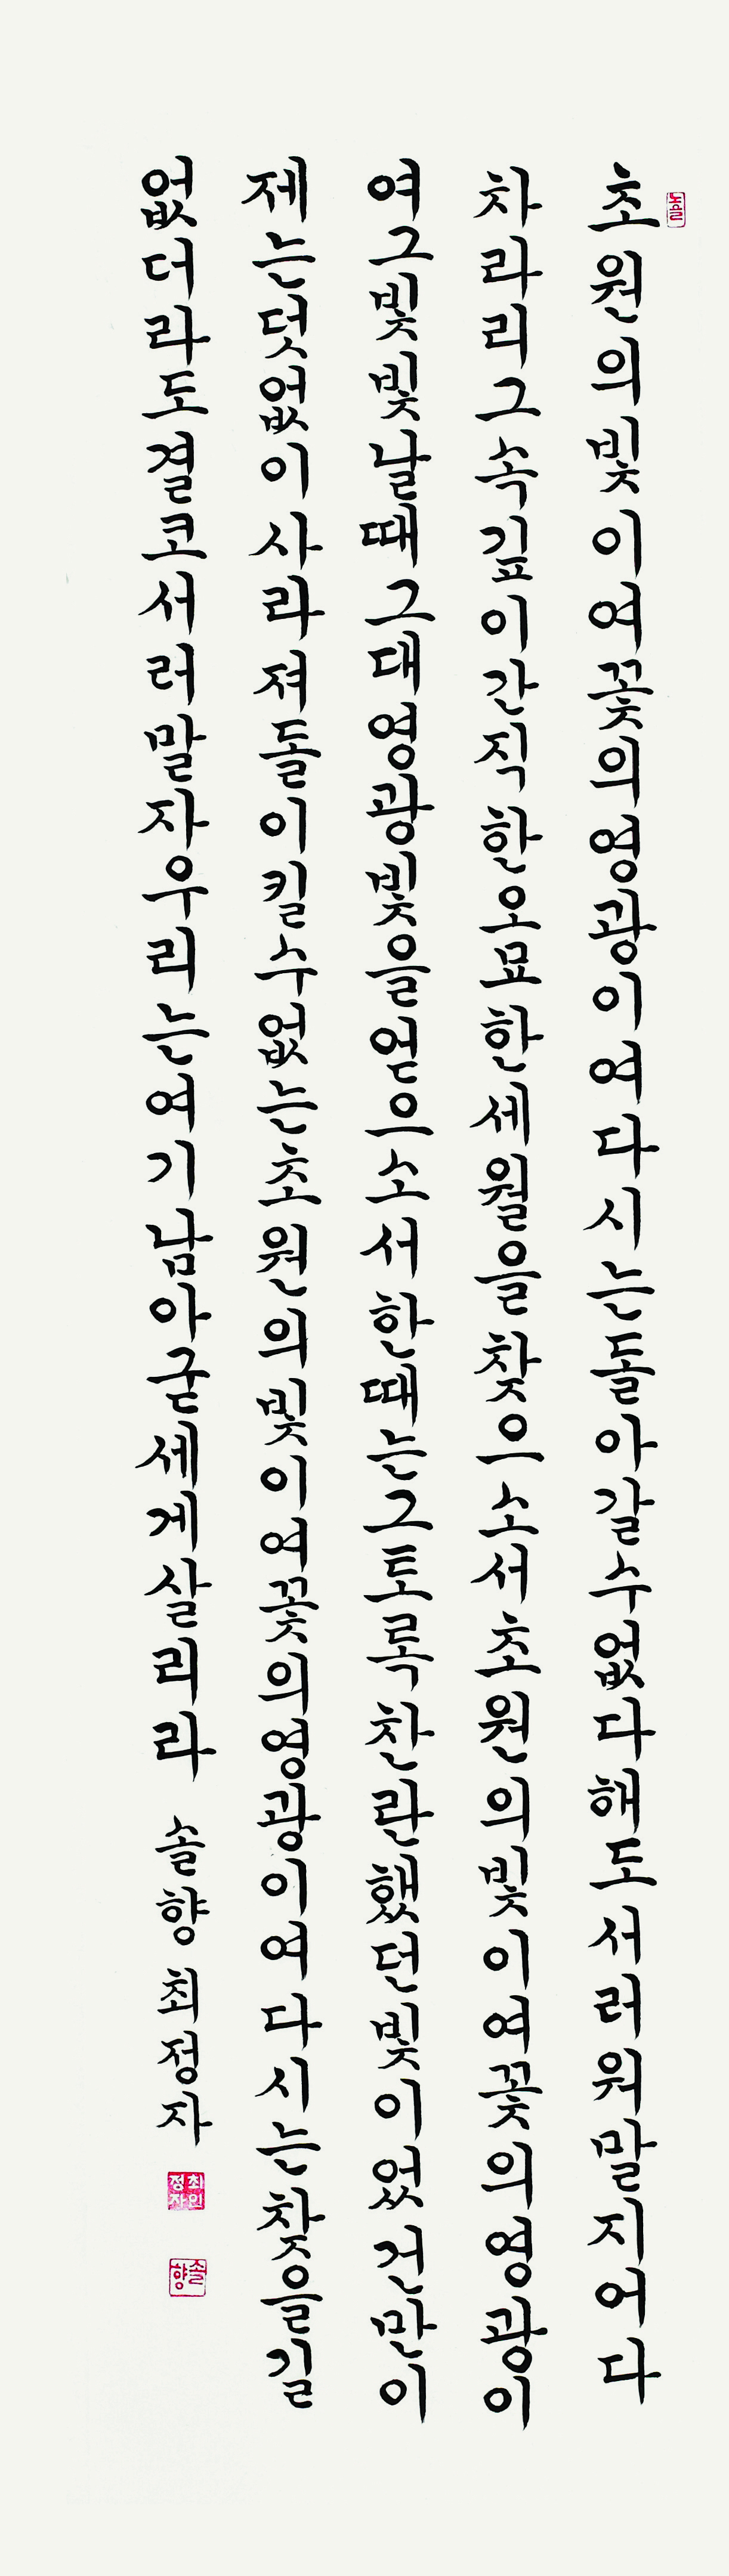 초원의빛이여꽃의영광이여다시는돌아갈수없다해도서러워말지어다
차라리그속깊이간직한오묘한세월을찾으소서초원의빛이여꽃의영광이
여그빛빛날때그대영광빛을얻으소서한때는그토록찬란했던빛이었건만이
제는덧없이사라져돌이킬수없는초원의빛이여꽃의영광이여다시는찾을길
없더라도결코서러말자우리는여기남아굳세게살리라 솔향 최정자
최인
정자
솔향